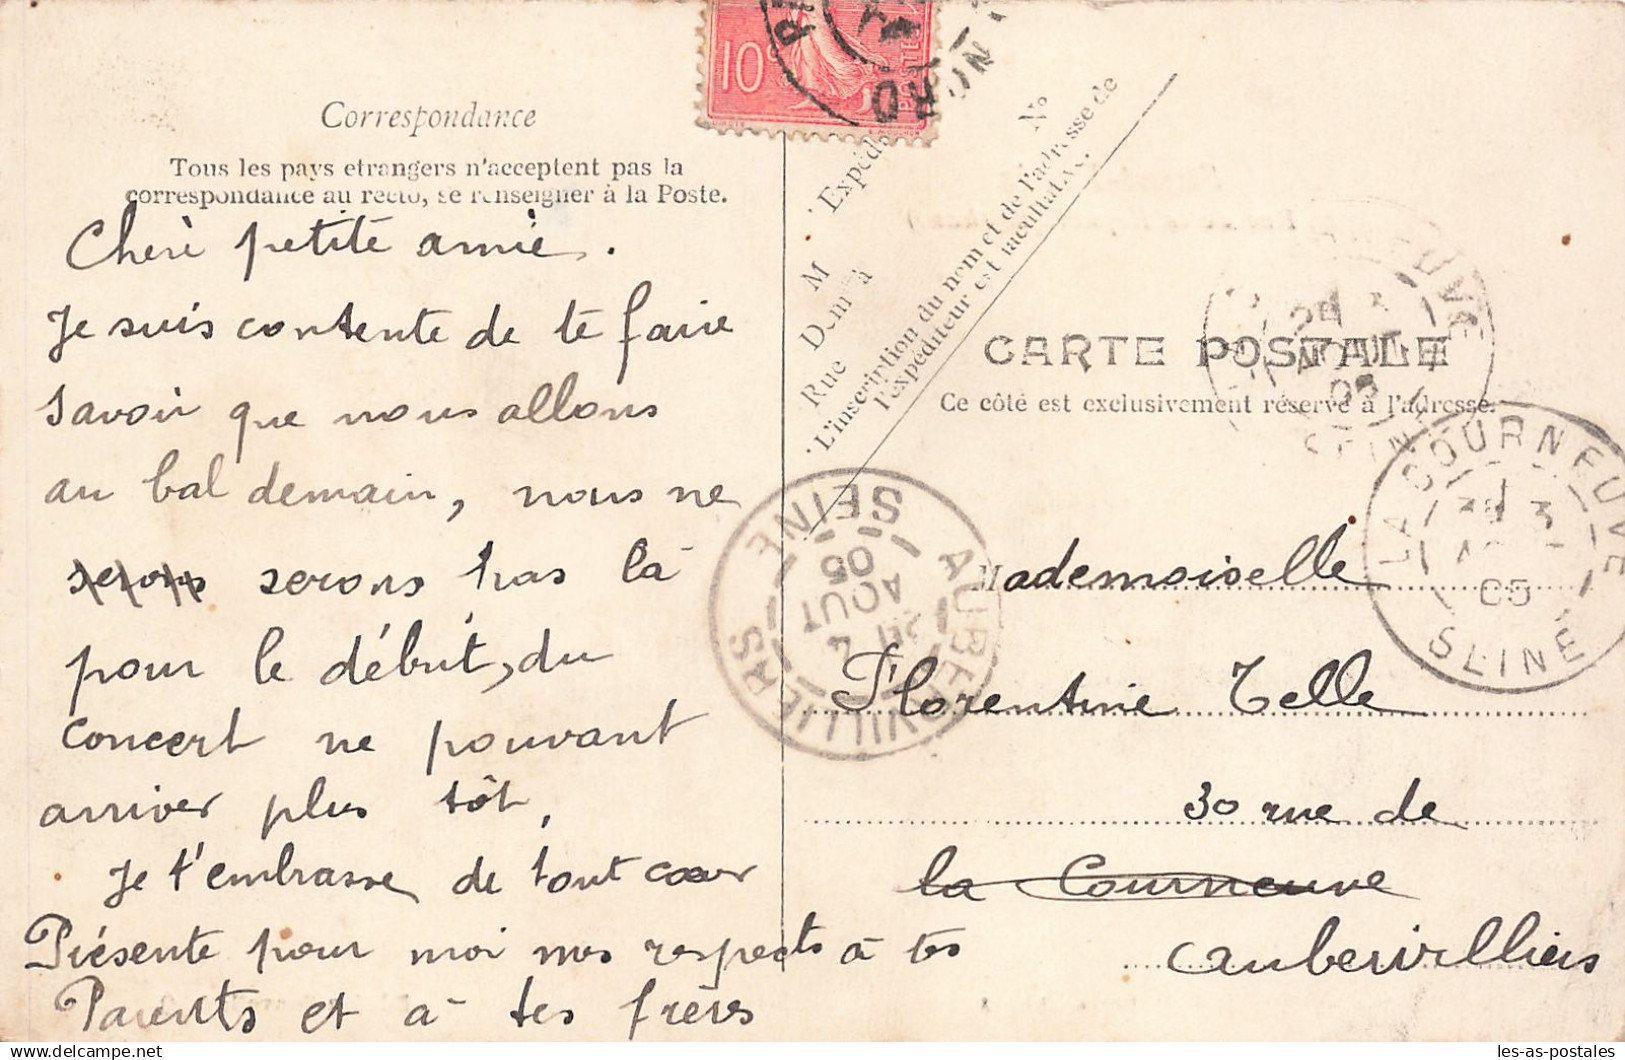 Correspondance
Tous les pays etrangers n'acceptent pas la
correspondance au recto, se renseigner à la Poste.
Cheri petite amie.
Je suis contente de te faire
savoir que nous allons
au bal demain, nous ne
serons serons pas là
pour le début, du
concert ne pouvant
arriver plus tôt,
Je t'embrasse de tout cœur
Présente pour moi mes respects à tes
Parents et à tes frères
10c
POSTES
NORD
Expéd
M
Dem à
Rue
No
L'inscription du nom et de l'adresse de
l'expéditeur est facultative.
CARTE POSTALE
Ce côté est exclusivement réservé à l'adresse.
LA COURNEUVE
05
SEINE
AUBERVILLIERS
4
AOUT
05
SEINE
Mademoiselle
Florentine Telle
30 rue de
la Courneuve
aubervilliers
les-as-postales
delcampe.net